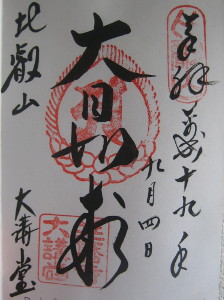 奉拝 平成十九年
九月四日
大日如来
比叡山
大講堂